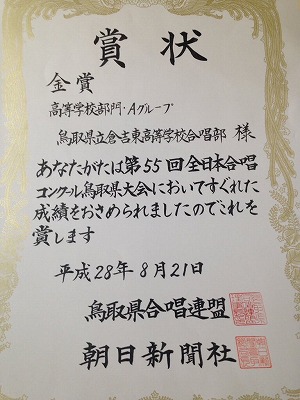 賞状
金賞
高等学校部門・Aグループ
鳥取県立倉吉東高等学校合唱部 様
あなたがたは第55回全日本合唱
コンクール鳥取県大会においてすぐれた
成績をおさめられましたのでこれを
賞します
平成28年8月21日
鳥取県合唱連盟
朝日新聞社